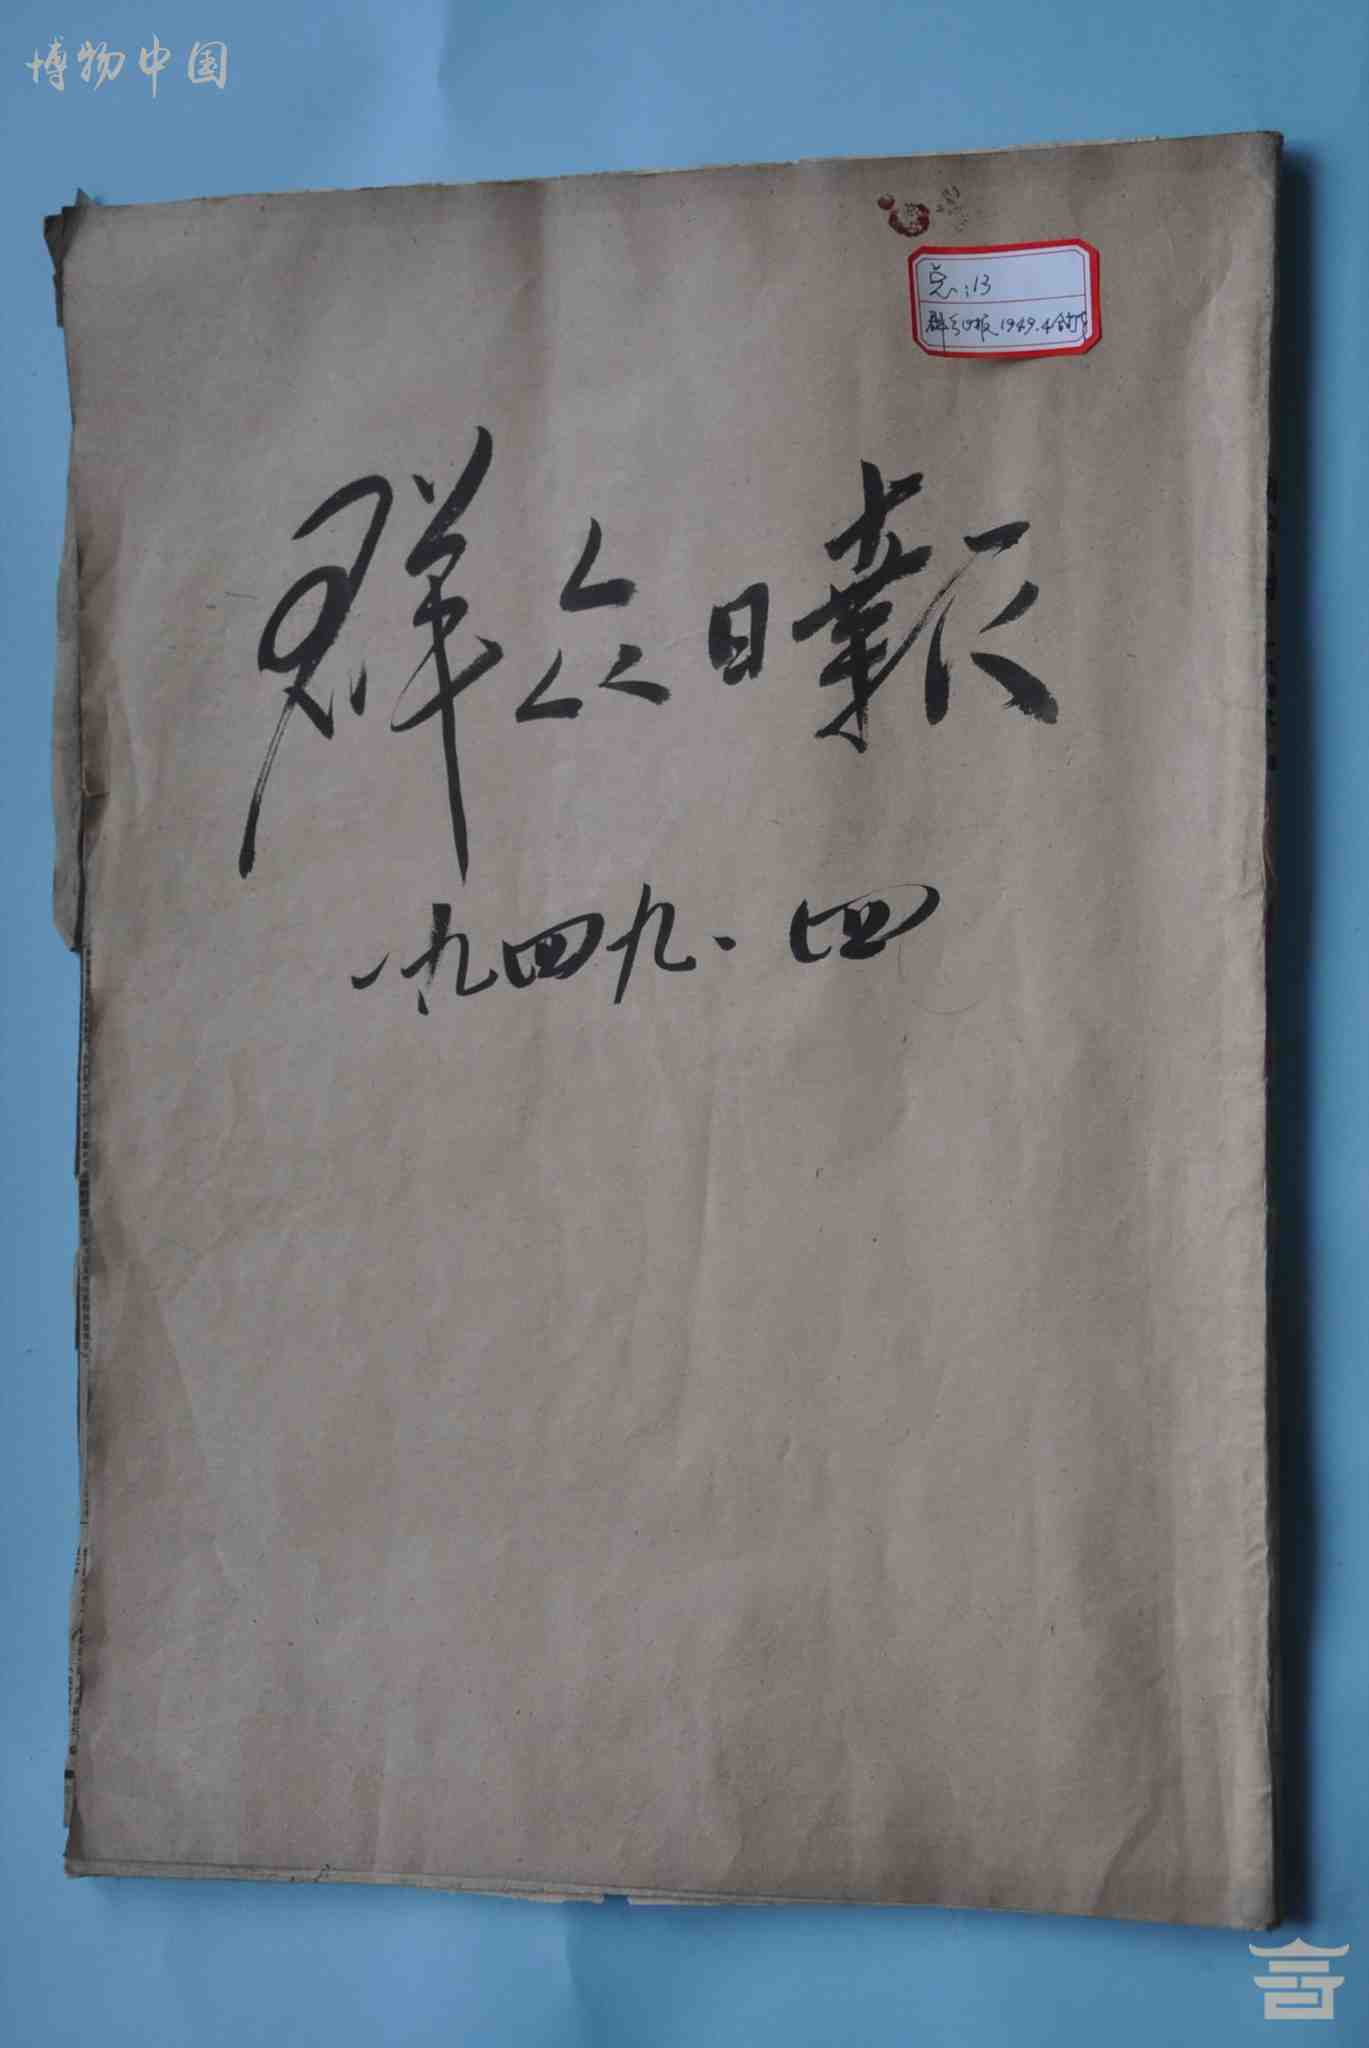 博物中国
总:13
群众日报 1949.4合订
群众日報
一九四九.四